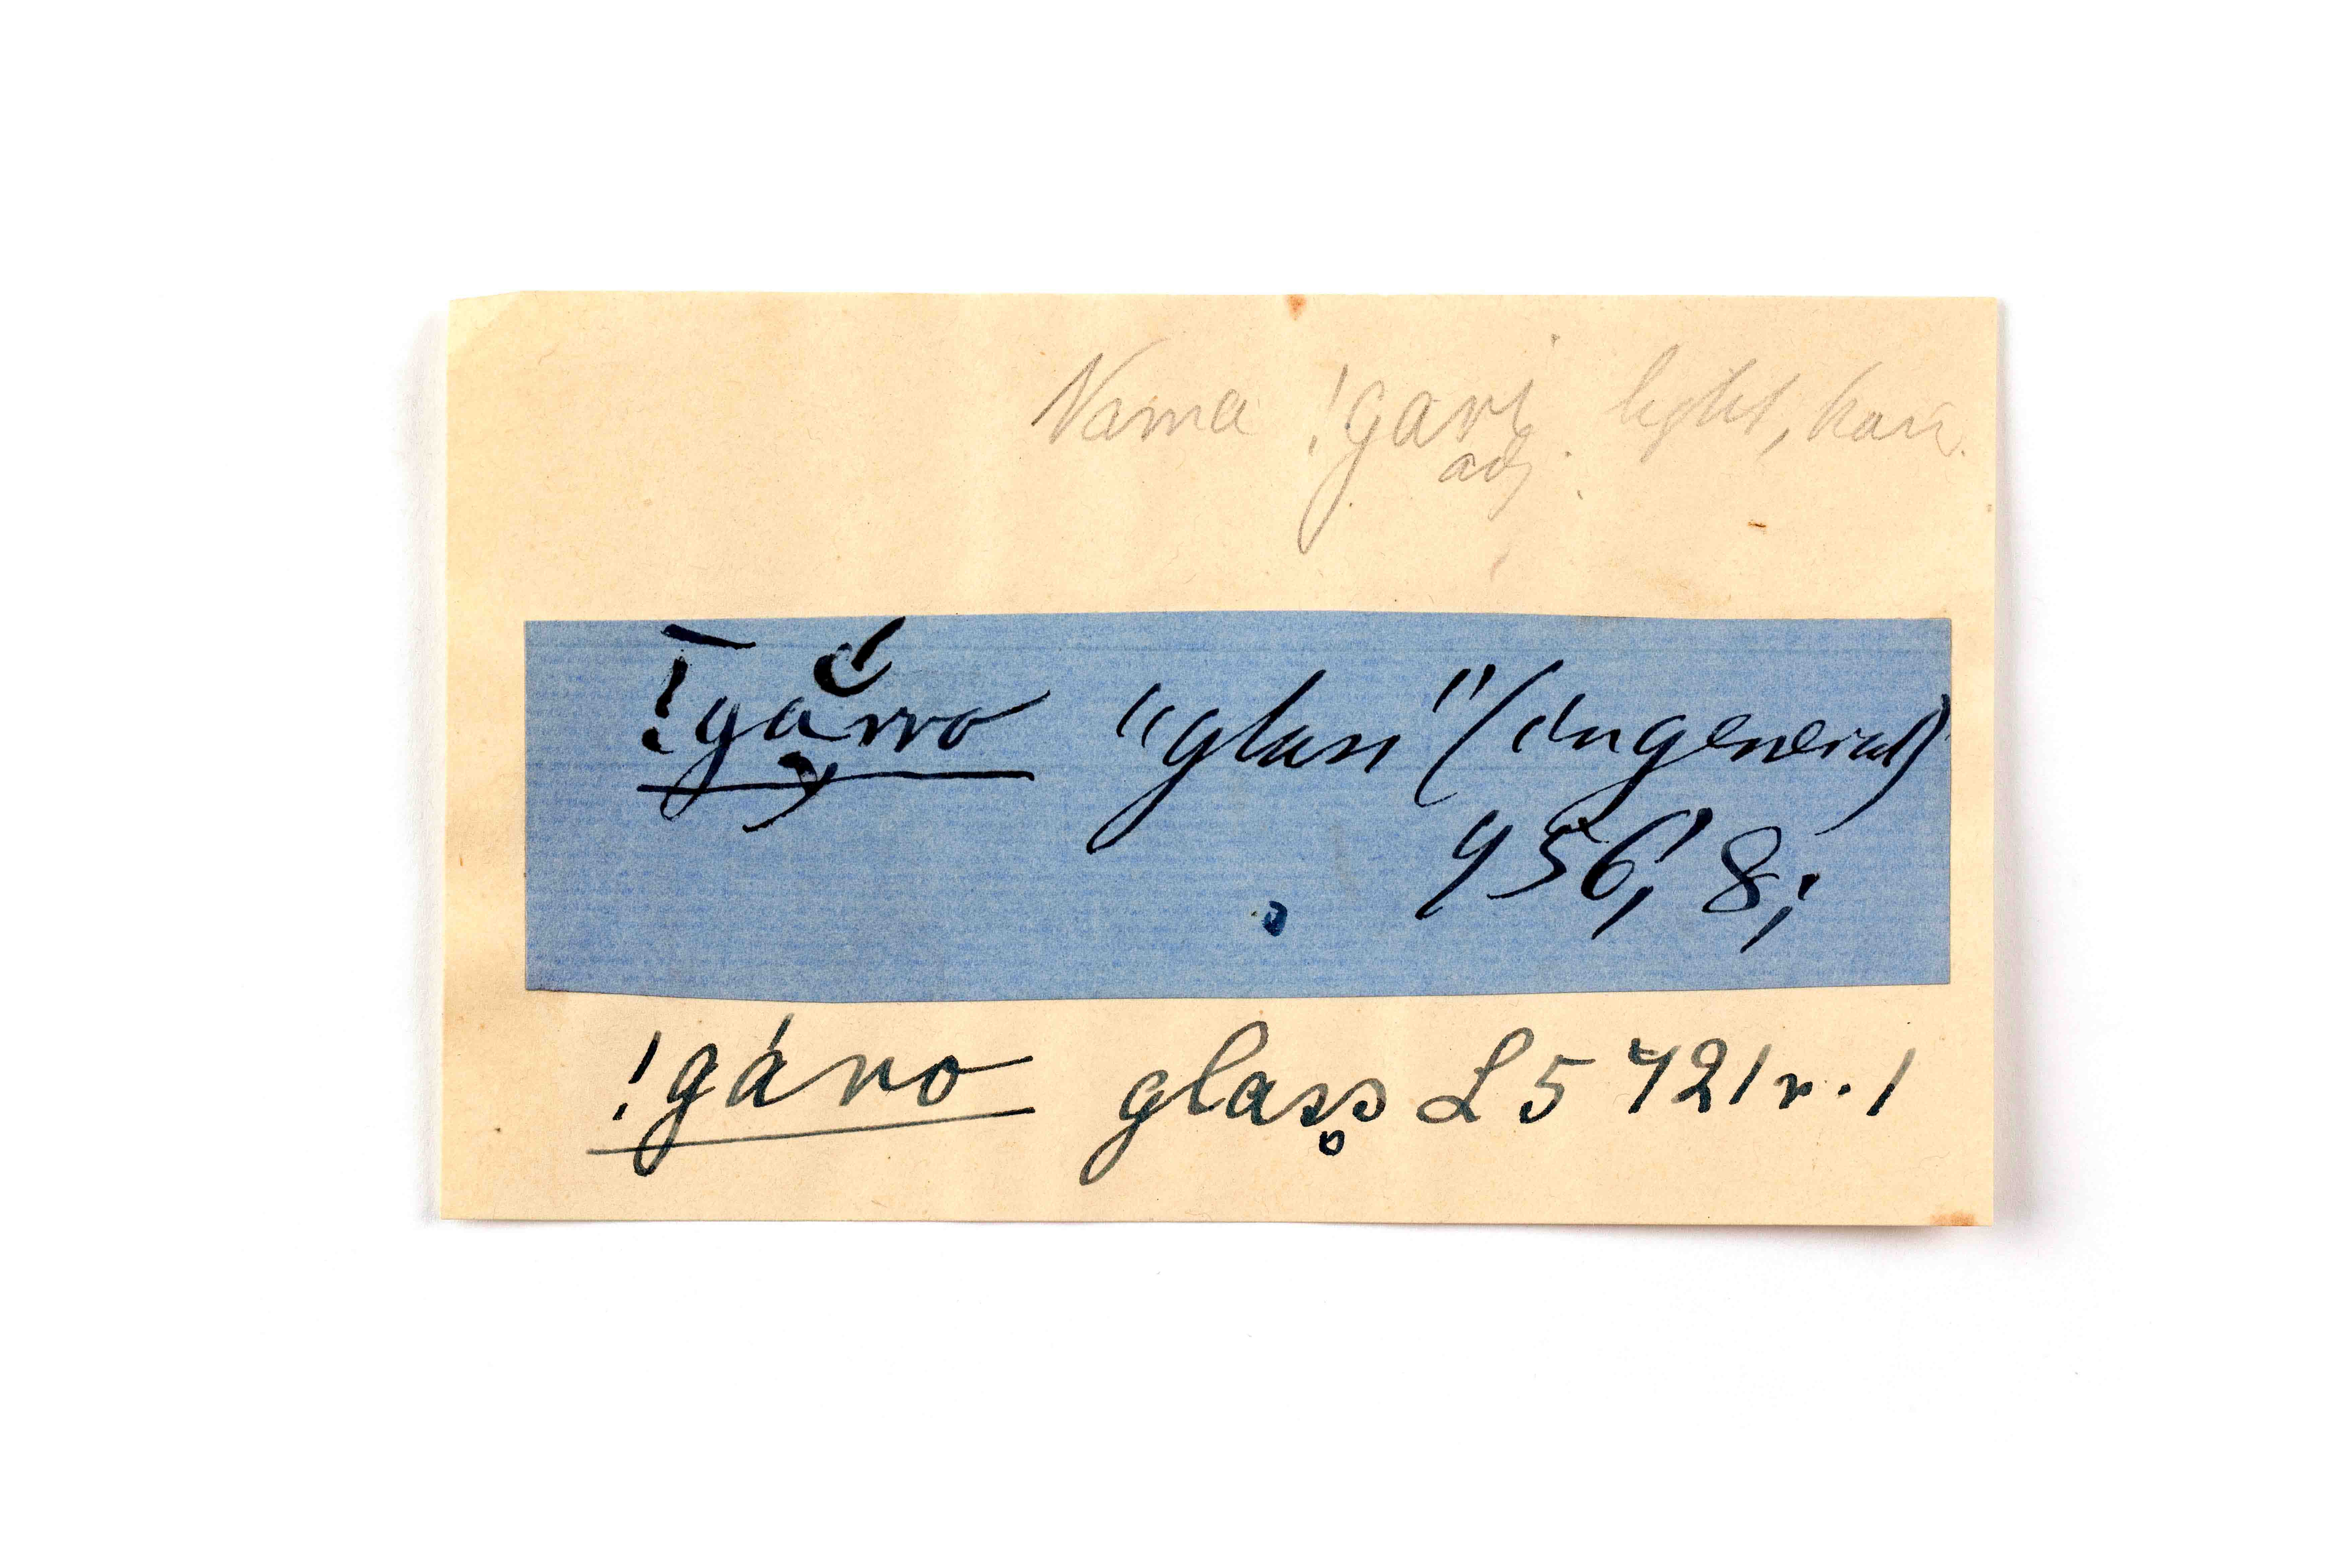 Nama !gari light,
adj.
!gắrro "glass" (in general)
956, 8;
!gáro glass L5 421 r. 1